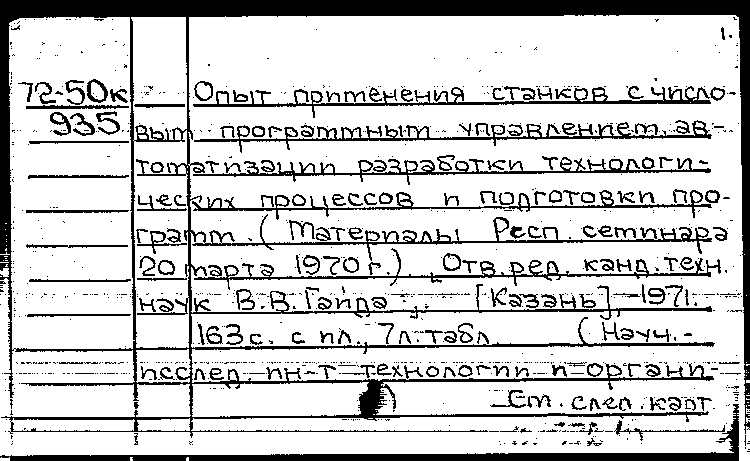 1.
72-50к Опыт применения станков с число-
935 вым программным управлением, ав-
томатизации разработки технологи-
ческих процессов и подготовки про-
грамм. (Материалы Респ. семинара
20 марта 1970 г.). Отв. ред. канд. техн.
наук В.В. Гайда. [Казань], 1971.
163 с. с ил., 7 л. табл. (Науч.-
исслед. ин-т технологии и органи-
См. след. карт